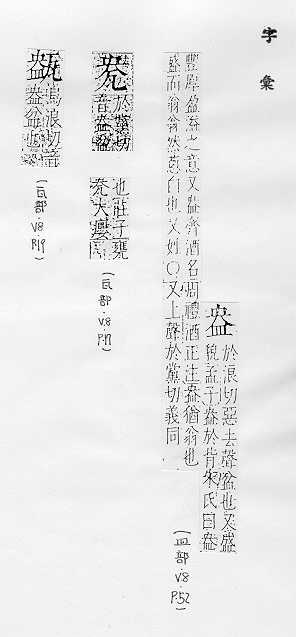 字彙
盎
於浪切惡去聲盆也又盛
貌孟子盎於背朱氏曰盎
豐厚盈溢之意又盎齊酒名周禮酒正注盎猶翁也
盛而翁翁然葱白也又姓○又上聲於黨切義同
(皿部.V8 P.52)
於黨切
音盎盆
也莊子甕
大癭
(瓦部.V.8 P.17)
烏浪切音
盎盆也
(瓦部.V8 P.19)